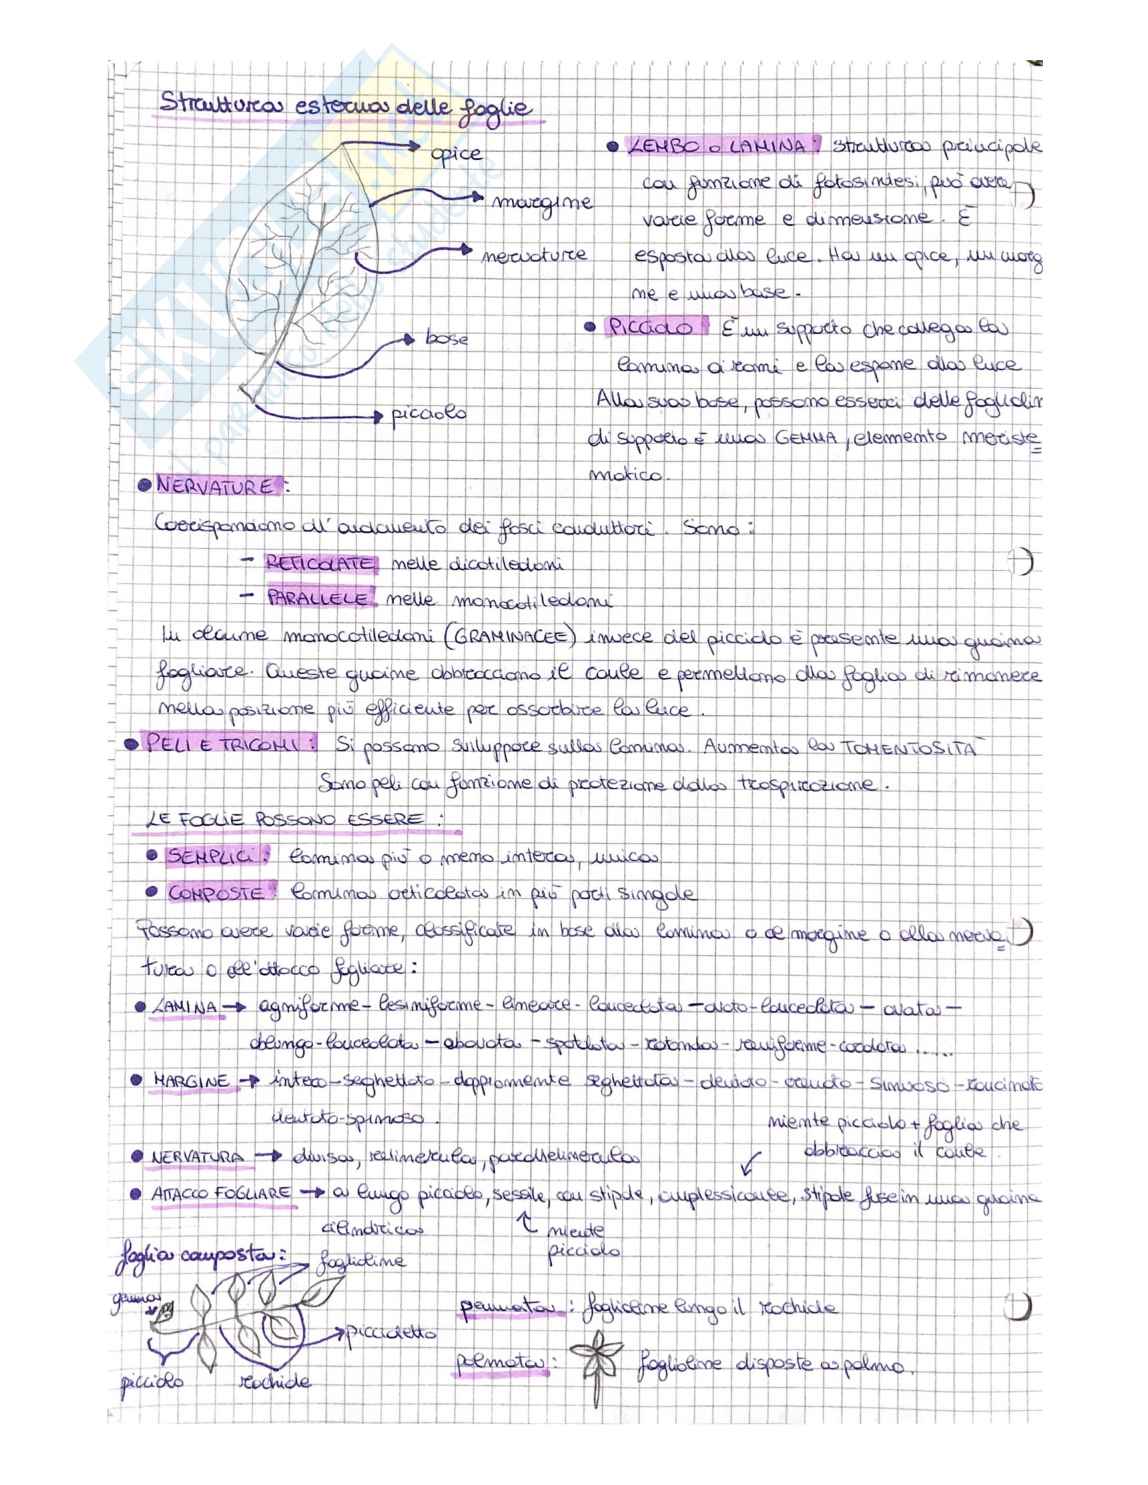 Struttura esterna delle foglie
apice
margine
nervature
base
picciolo
• LEMBO o LAMINA: struttura principale
con funzione di fotosintesi, può avere
varie forme e dimensione. È
esposta alla luce. Ha un apice, un marg
me e una base.
• PICCIOLO È un supporto che collega la
lamina ai rami e la espone alla luce
Alla sua base, possono esserci delle foglioline
di supporto e una GEMMA, elemento meriste
matico.
• NERVATURE:
Corrispondono all'andamento dei fasci conduttori. Sono:
- RETICOLATE nelle dicotiledoni
- PARALLELE nelle monocotiledoni
In alcune monocotiledoni (GRAMINACEE) invece del picciolo è presente una guaina
fogliare. Queste guaine abbracciano il caule e permettono alla foglia di rimanere
nella posizione più efficiente per assorbire la luce.
• PELI E TRICOMI: Si possono sviluppare sulla lamina. Aumenta la TOMENTOSITÀ
Sono peli con funzione di protezione dalla traspirazione.
LE FOGLIE POSSONO ESSERE:
• SEMPLICI: lamina più o meno intera, unica
• COMPOSTE: lamina articolata in più parti singole
Possono avere varie forme, classificate in base alla lamina o al margine o alla nerva
tura o all'attacco fogliare:
• LAMINA → agniforme - lesiniforme - lineare - lanceolata - ovato-lanceolata - ovata -
oblungo-lanceolata - obovata - spatolata - rotonda - reniforme - cordata .....
• MARGINE → intero - seghettato - doppiamente seghettata - dentato - crenato - sinuoso - roncinato
dentato-spinoso.
niente picciolo + foglia che
abbraccia il caule.
• NERVATURA → divisa, retinervata, parallelinervata
• ATTACCO FOGLIARE → a lungo picciolo, sessile, con stipole, amplessicaule, stipole fuse in una guaina
cilindrica
niente
picciolo
foglia composta:
foglioline
gemma
piccioletto
picciolo
rachide
pennata: foglioline lungo il rachide
palmata: foglioline disposte a palmo.